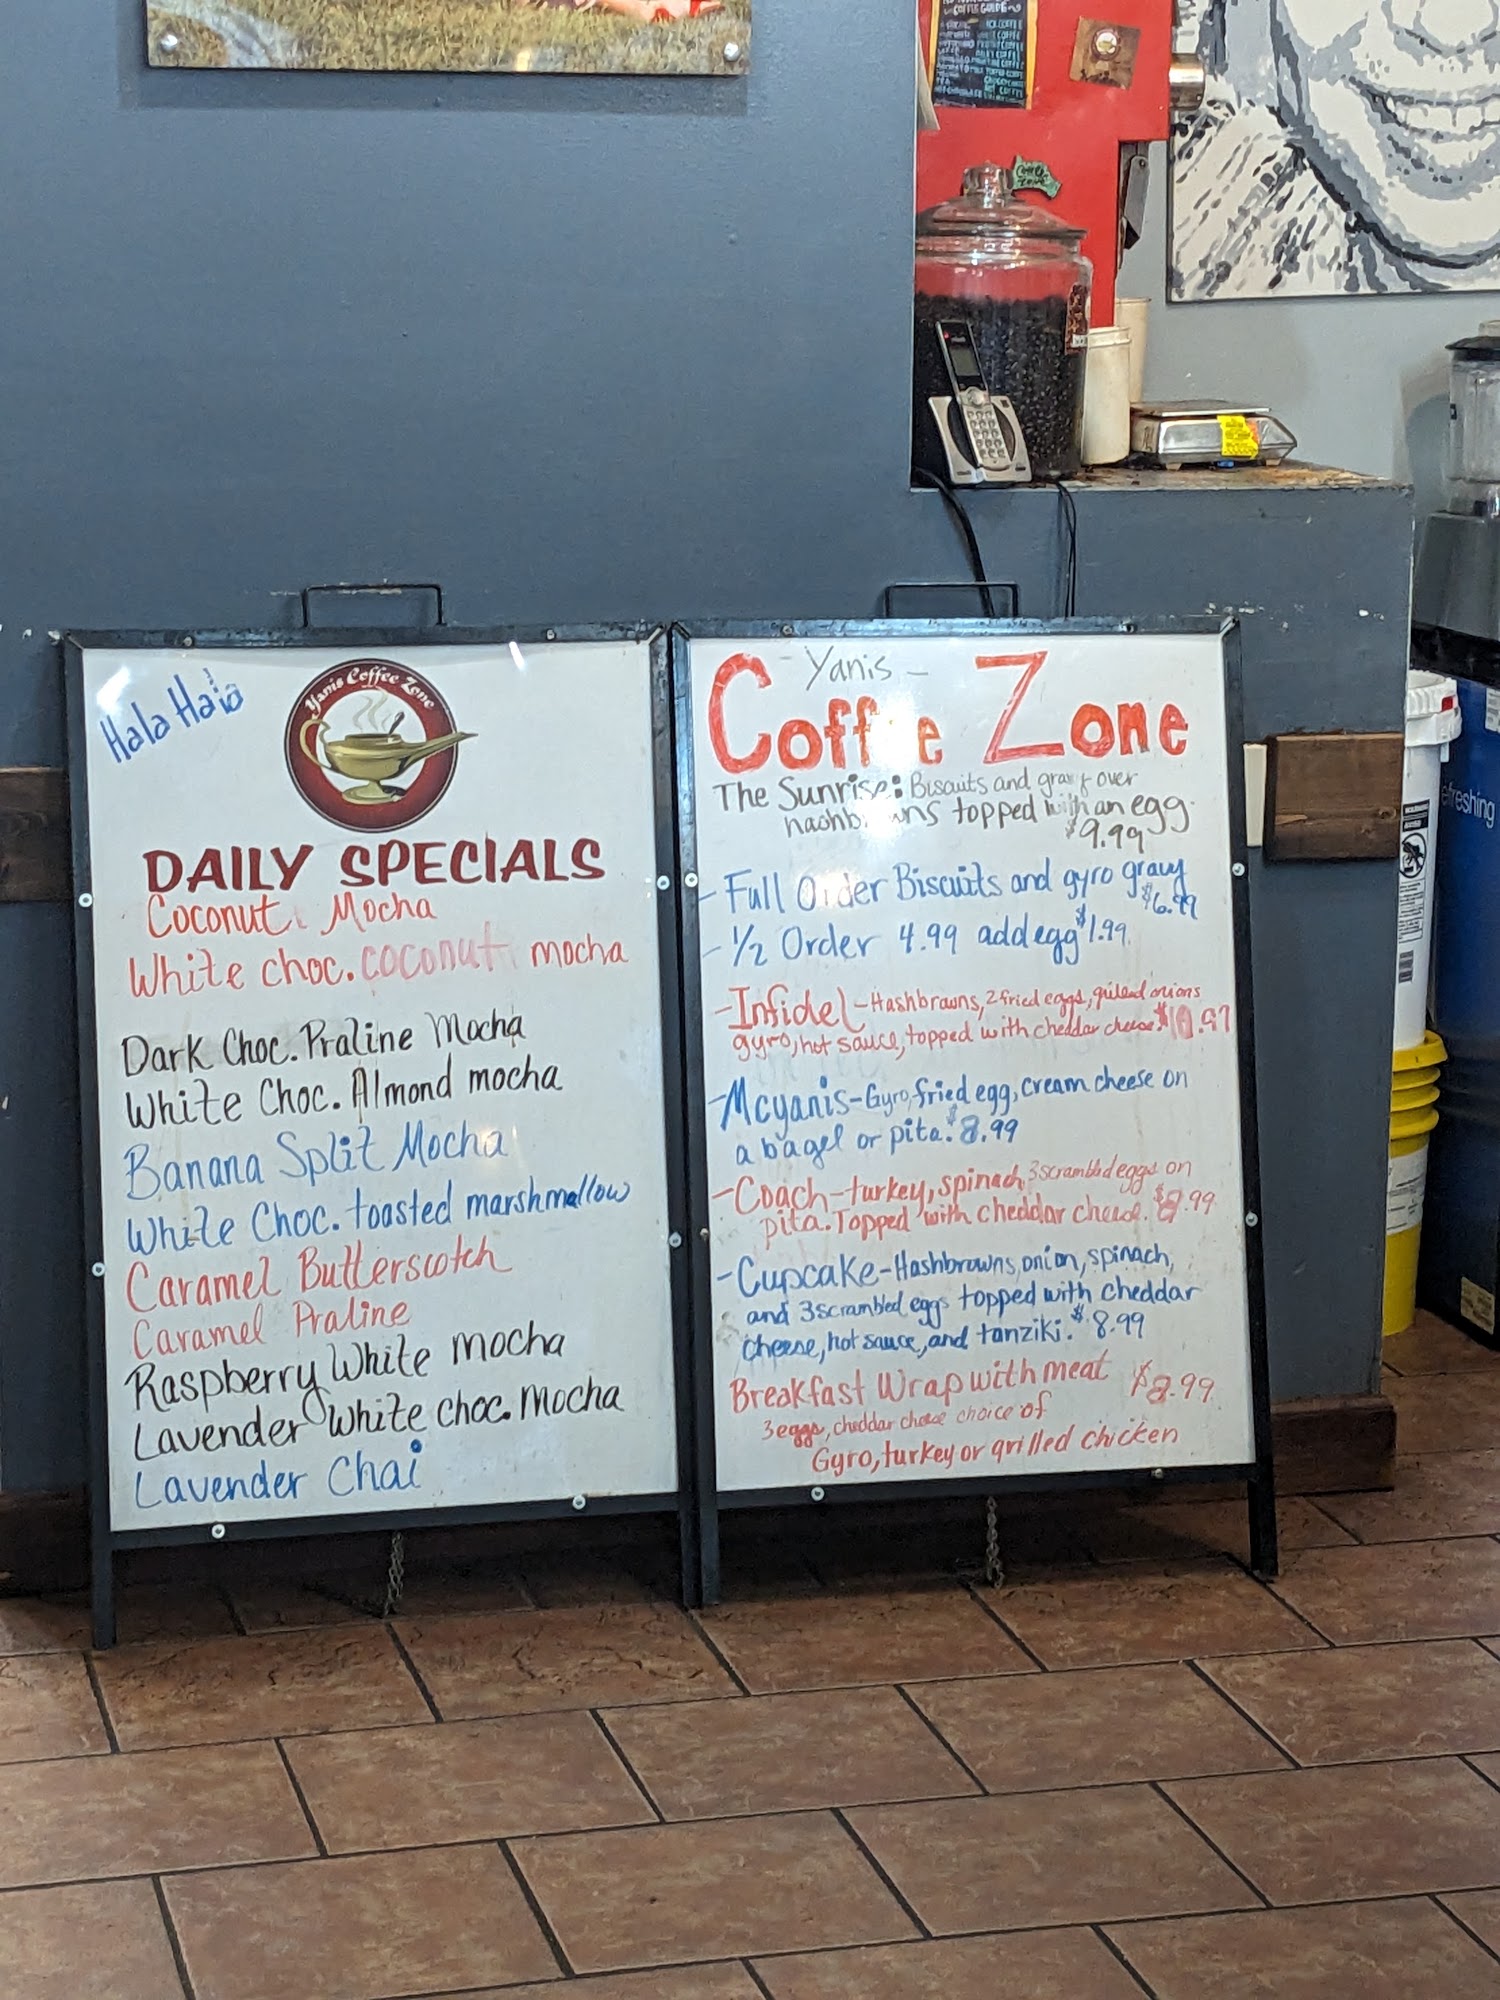 Hala Hala
Yanis Coffee Zone
DAILY SPECIALS
Coconut Mocha
White choc. coconut mocha
Dark Choc. Praline Mocha
White Choc. Almond mocha
Banana Split Mocha
White Choc. toasted marshmallow
Caramel Butterscotch
Caramel Praline
Raspberry White mocha
Lavender White choc. Mocha
Lavender Chai
- Yanis -
Coffee Zone
The Sunrise: Biscuits and gravy over
hashbrowns topped with an egg.
$9.99
- Full Order Biscuits and gyro gravy
$6.99
- 1/2 Order 4.99 add egg $1.99
- Infidel - Hashbrowns, 2 fried eggs, grilled onions
gyro, hot sauce, topped with cheddar cheese
- Mcyanis - Gyro, fried egg, cream cheese on
a bagel or pita. $8.99
- Coach - turkey, spinach, 3 scrambled eggs on
pita. Topped with cheddar cheese. $8.99
- Cupcake - Hashbrowns, onion, spinach,
and 3 scrambled eggs topped with cheddar
cheese, hot sauce, and tanziki. $8.99
Breakfast Wrap with meat $8.99
3 eggs, cheddar cheese choice of
Gyro, turkey or grilled chicken
COFFEE GUIDE
Coffee
Zone
efreshing